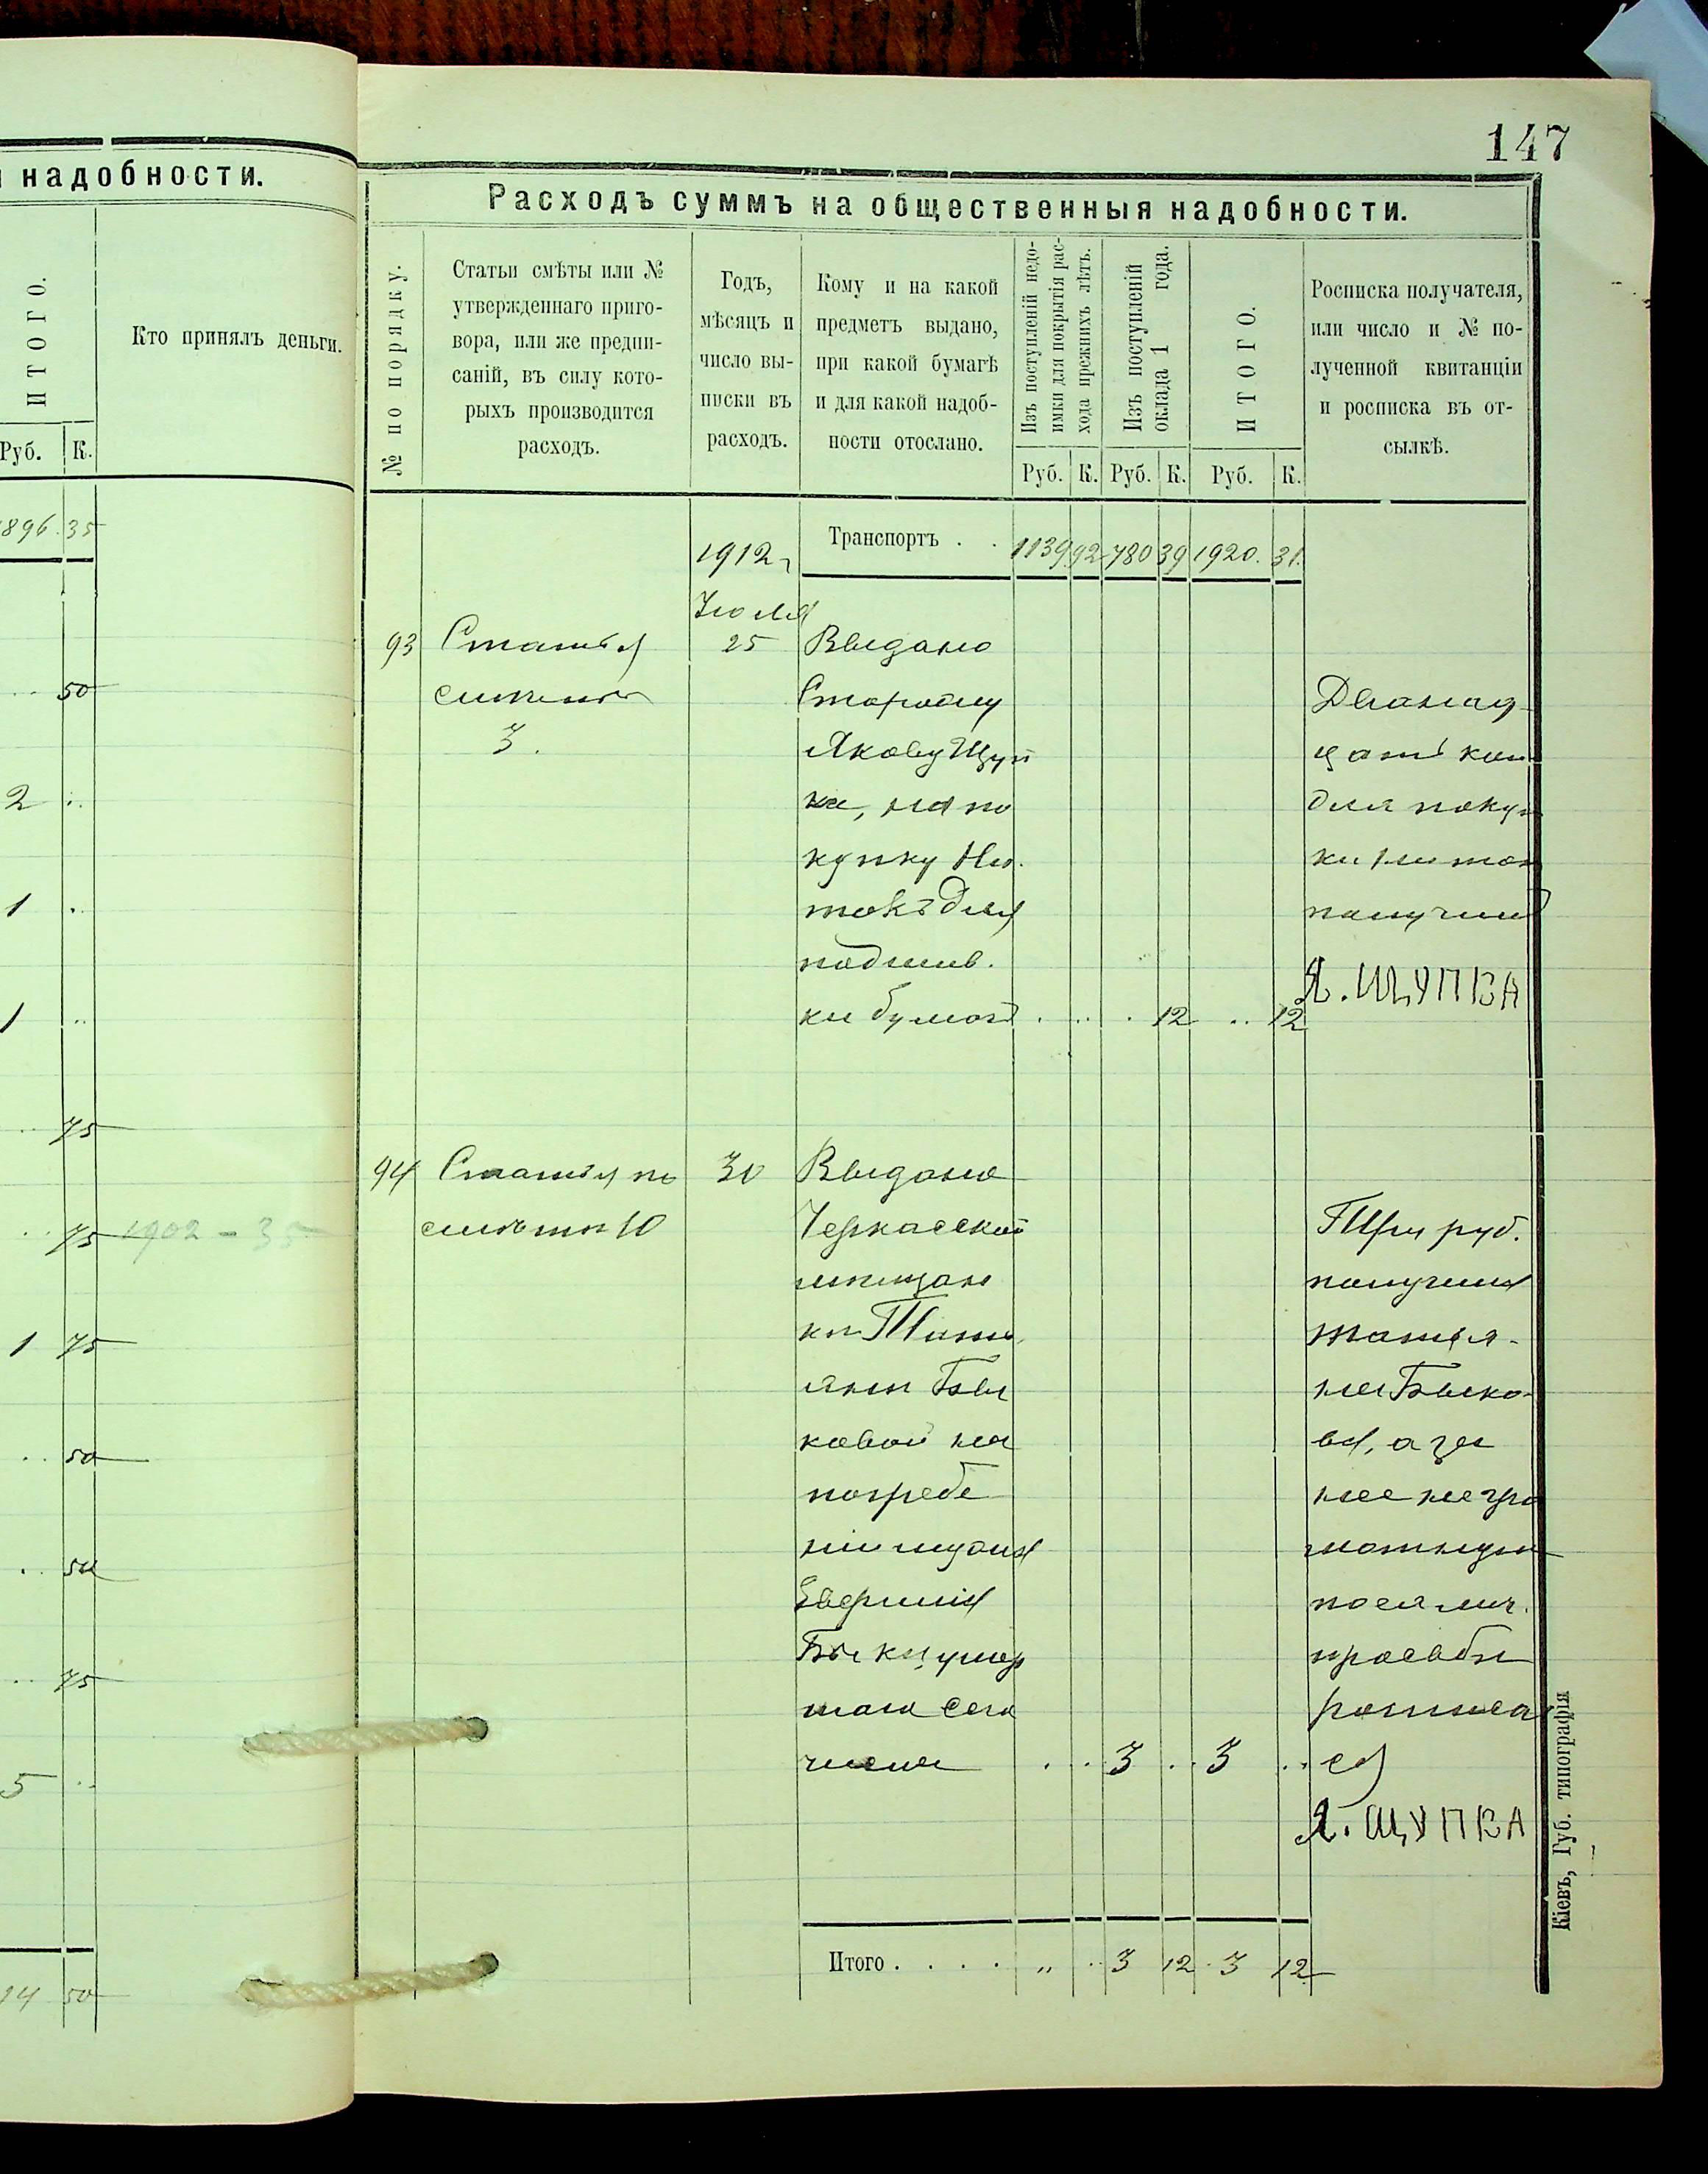 147
надобности.
ИТОГО.
Кто принялъ деньги.
Руб. К.
896. 35
.. 50
2 ..
1 .
1 ..
.. 75
.. 75 1902 - 35
1 75
.. 50
.. 50
.. 75
5 ..
14 50
Расходъ суммъ на общественныя надобности.
№ по порядку.
Статьи смѣты или №
утвержденнаго приго-
вора, или же предпи-
саній, въ силу кото-
рыхъ производится
расходъ.
Годъ,
мѣсяцъ и
число вы-
писки въ
расходъ.
Кому и на какой
предметъ выдано,
при какой бумагѣ
и для какой надоб-
ности отослано.
Изъ поступленій недо-
имки для покрытія рас-
хода прежнихъ лѣтъ.
Изъ поступленій
оклада 1 года.
ИТОГО.
Росписка получателя,
или число и № по-
лученной квитанціи
и росписка въ от-
сылкѣ.
Руб. К. Руб. К. Руб. К.
Транспортъ . . 1139 92 780 39 1920. 31.
1912 г
Июля
93 Статья 25 Выдано
смѣты
3.
Сторожу
Якову Щуп
ке, на по
купку Ни-
токъ для
подшив-
ки бумагъ . .. . 12 .. 12
Двенад
цать коп
для покуп
ки ниток
получилъ
Я. ЩУПКА
94 Статья по 30 Выдано
смѣты 10
Черкасской
мѣщан
кѣ Тать
янѣ Бы
ковой на
погребе
ніе мужа
Бык, умер
шаго сего
числа . .. 3 . . 3 ..
Три руб.
получила
Татья-
на Быко-
ва, а за
нее негра
мотную
по ея лич.
просьбѣ
росписал
ся
Я. ЩУПКА
Итого . . . . „ .. 3 12 . 3 12
Кіевъ, Губ. типографія